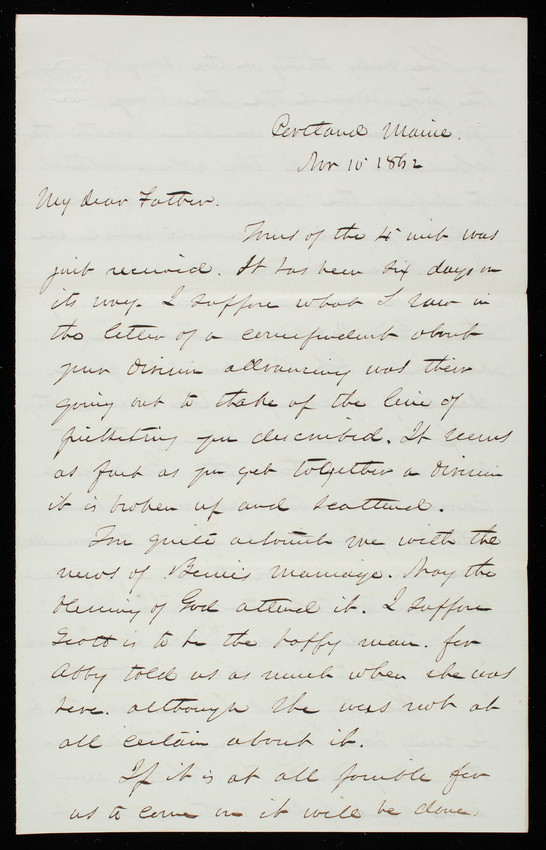 Portland Maine.
Nov 10 1862
My dear Father.
Yours of the 4 inst was
just received. It has been six days on
its way. I suppose what I saw in
the letter of a correspondent about
your division advancing was their
going out to take up the line of
picketing you described. It seems
as fast as you get together a division
it is broken up and scattered.
You quite astonish me with the
news of marriage. May the
blessing of God attend it. I suppose
Scott is to be the happy man. for
Abby told us as much when she was
here. although she was not at
all certain about it.
If it is at all possible for
us to come on it will be done.